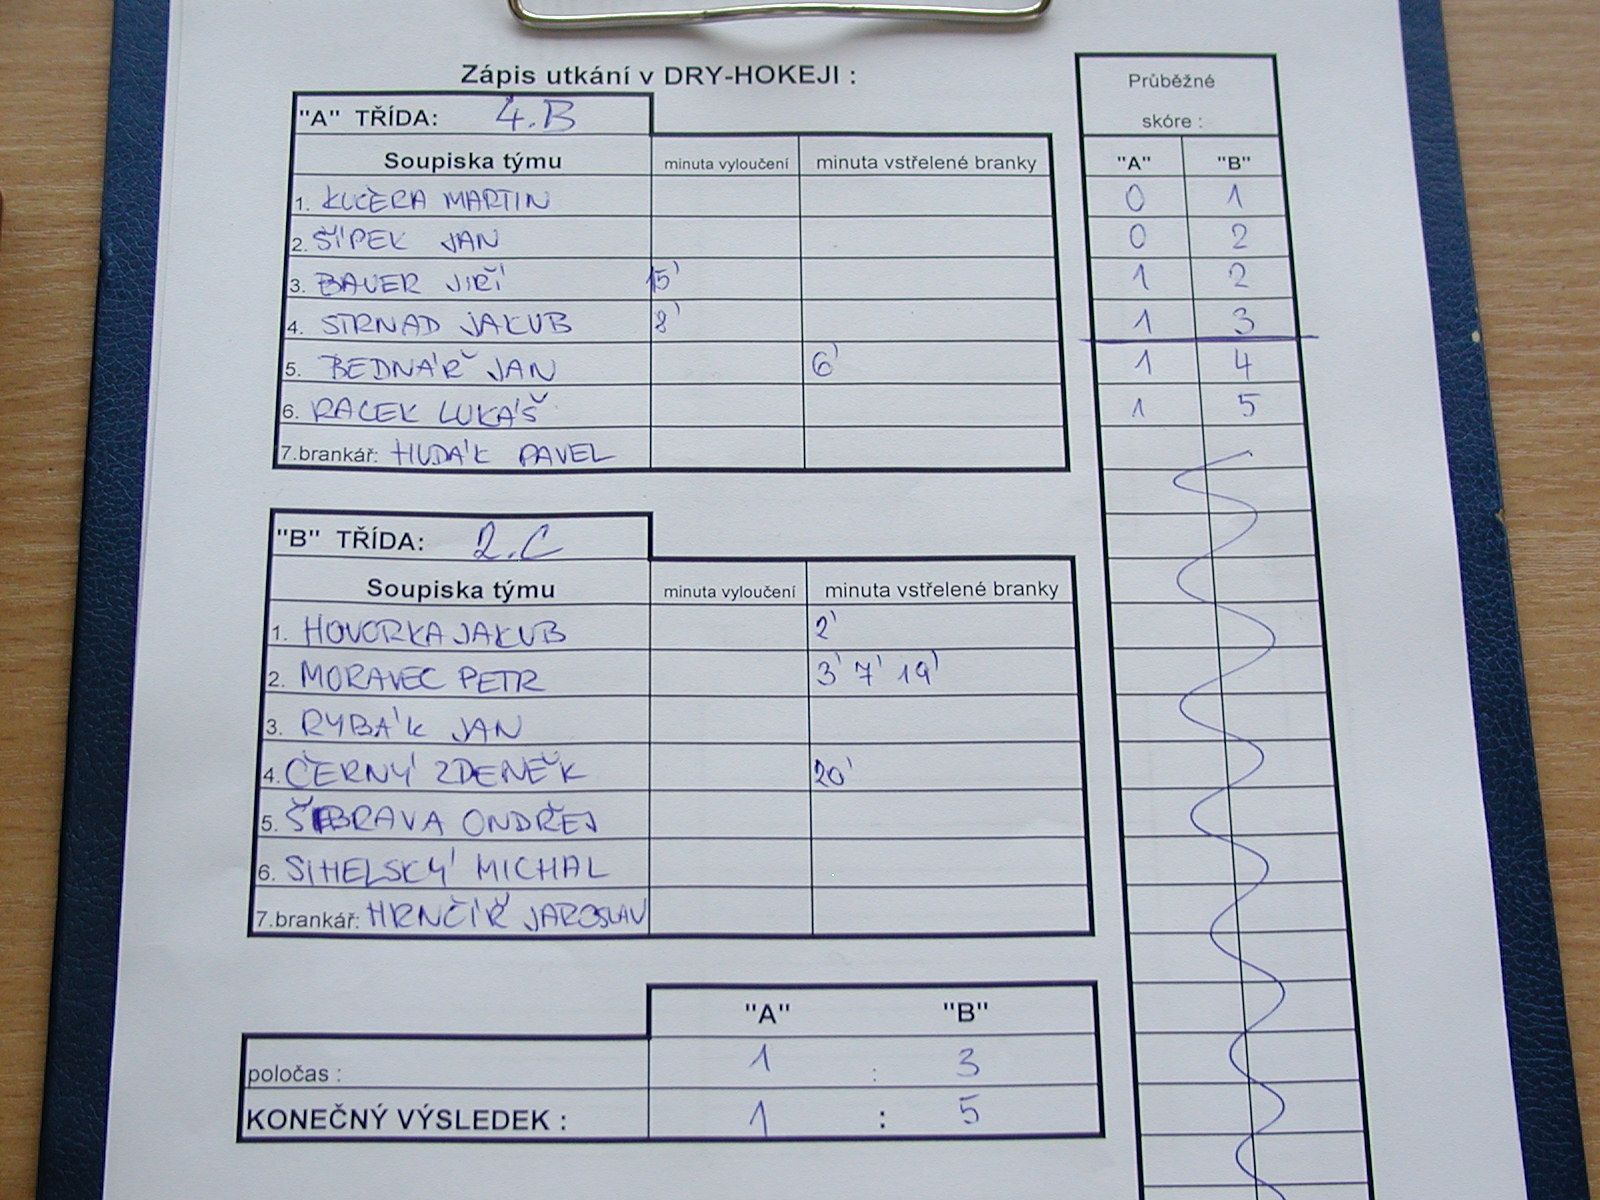 Zápis utkání v DRY-HOKEJI :
"A" TŘÍDA: 4.B
Soupiska týmu minuta vyloučení minuta vstřelené branky
1. KUČERA MARTIN
2. ŠÍPEK JAN
3. BAUER JIŘÍ 15'
4. STRNAD JAKUB 8'
5. BEDNÁŘ JAN 6'
6. RACEK LUKÁŠ
7.brankář: HUDÁK PAVEL
"B" TŘÍDA: 2.C
Soupiska týmu minuta vyloučení minuta vstřelené branky
1. HOVORKA JAKUB 2'
2. MORAVEC PETR 3' 7' 19'
3. RYBÁK JAN
4. ČERNÝ ZDENĚK 20'
5. ONDŘEJ
6. SIHELSKÝ MICHAL
7.brankář: HRNČÍŘ JAROSLAV
"A" "B"
poločas : 1 : 3
KONEČNÝ VÝSLEDEK : 1 : 5
Průběžné
skóre :
"A" "B"
0 1
0 2
1 2
1 3
1 4
1 5